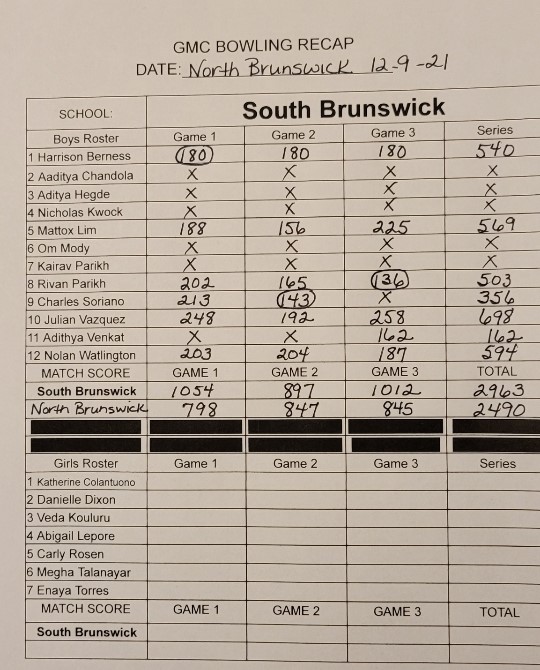 GMC BOWLING RECAP
DATE: North Brunswick 12-9-21
SCHOOL: South Brunswick
Boys Roster Game 1 Game 2 Game 3 Series
1 Harrison Berness 180 180 180 540
2 Aaditya Chandola X X X X
3 Aditya Hegde X X X X
4 Nicholas Kwock X X X X
5 Mattox Lim 188 156 225 569
6 Om Mody X X X X
7 Kairav Parikh X X X X
8 Rivan Parikh 202 165 136 503
9 Charles Soriano 213 143 X 356
10 Julian Vazquez 248 192 258 698
11 Adithya Venkat X X 162 162
12 Nolan Watlington 203 204 187 594
MATCH SCORE GAME 1 GAME 2 GAME 3 TOTAL
South Brunswick 1054 897 1012 2963
North Brunswick 798 847 845 2490
Girls Roster Game 1 Game 2 Game 3 Series
1 Katherine Colantuono
2 Danielle Dixon
3 Veda Kouluru
4 Abigail Lepore
5 Carly Rosen
6 Megha Talanayar
7 Enaya Torres
MATCH SCORE GAME 1 GAME 2 GAME 3 TOTAL
South Brunswick